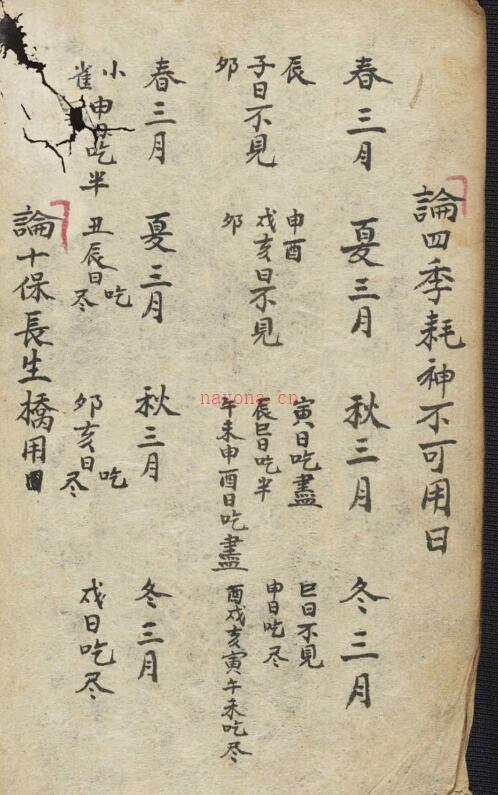 論四季耗神不可用日
春三月
辰
子日不見
卯
夏三月
申酉
戌亥日不見
卯
秋三月
寅日吃盡
辰巳日吃半
午未申酉日吃盡
冬三月
巳日不見
申日吃尽
酉戌亥寅午未吃尽
春三月
小
雀申日吃半
夏三月
丑辰日吃尽
秋三月
卯亥日吃尽
冬三月
戌日吃尽
論十保長生橋用
nayona.cn